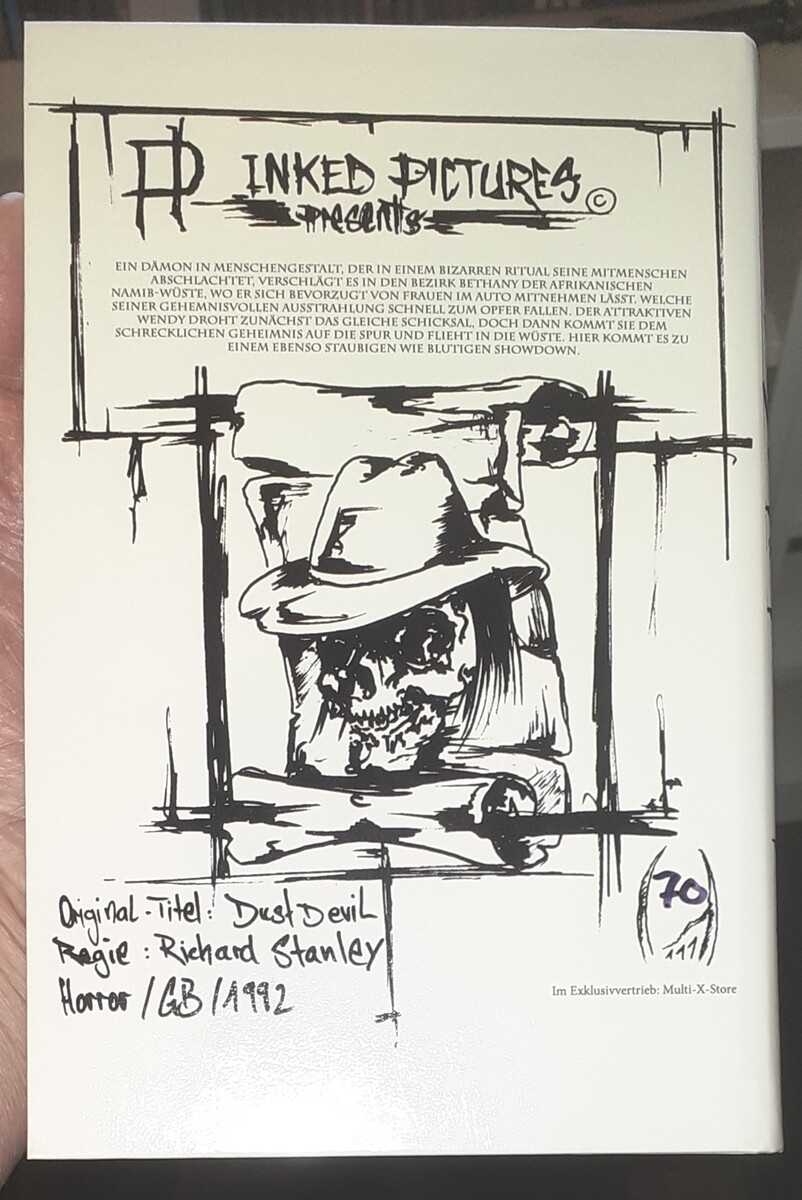 INKED PICTURES ©
PRESENTS
EIN DÄMON IN MENSCHENGESTALT, DER IN EINEM BIZARREN RITUAL SEINE MITMENSCHEN
ABSCHLACHTET, VERSCHLÄGT ES IN DEN BEZIRK BETHANY DER AFRIKANISCHEN
NAMIB-WÜSTE, WO ER SICH BEVORZUGT VON FRAUEN IM AUTO MITNEHMEN LÄSST. WELCHE
SEINER GEHEMNISVOLLEN AUSSTRAHLUNG SCHNELL ZUM OPFER FALLEN. DER ATTRAKTIVEN
WENDY DROHT ZUNÄCHST DAS GLEICHE SCHICKSAL, DOCH DANN KOMMT SIE DEM
SCHRECKLICHEN GEHEIMNIS AUF DIE SPUR UND FLIEHT IN DIE WÜSTE. HIER KOMMT ES ZU
EINEM EBENSO STAUBIGEN WIE BLUTIGEN SHOWDOWN.
Original-Titel: Dust Devil
Regie: Richard Stanley
Horror/GB/1992
70
111
Im Exklusivvertrieb: Multi-X-Store